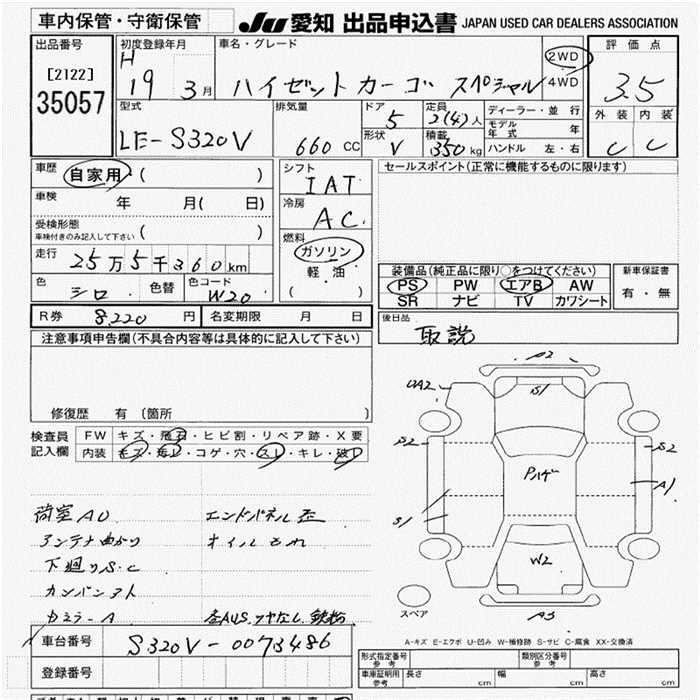 車内保管・守衛保管
JU 愛知 出品申込書 JAPAN USED CAR DEALERS ASSOCIATION
出品番号
[2122]
35057
初度登録年月
H 19 3月
車名・グレード
ハイゼットカーゴ スペシャル
2WD
4WD
評価点
3.5
外装 内装
C C
型式
LE-S320V
排気量
660 CC
ドア
5
形状
V
定員
2(4)人
積載
350kg
ディーラー・並行
モデル年式 年
ハンドル 左・右
車歴
自家用・( )
車検
年 月( 日)
受検形態
車検付きのみ記入して下さい ( )
走行
25万5千360km
色
シロ
色替
色コード
W20
シフト
IAT
冷房
AC
燃料
ガソリン
軽油
( )
セールスポイント(正常に機能するものに限ります)
装備品(純正品に限り○をつけてください)
PS PW エアB AW
SR ナビ TV カワシート
新車保証書
有・無
R券 8,220円
名変期限 月 日
後日品
取説
注意事項申告欄(不具合内容等は具体的に記入して下さい)
修復歴 有〔箇所 〕
検査員記入欄
FW キズ・飛石・ヒビ割・リペア跡・X要
内装 キズ・汚レ・コゲ・穴・スレ・キレ・破レ
荷室AU エンドパネル歪
アンテナ曲がり オイルもれ
下廻りS.C
カウルA 各AUS.ツヤなし.鉄粉
A2
UA2
S1
S2
S2
Pハゲ
A1
S1
W2
A3
スペア
A-キズ E-エクボ U-凹み W-補修跡 S-サビ C-腐食 XX-交換済
車台番号
S320V-0073486
登録番号
形式指定番号 参考
類別区分番号 参考
車庫証明用 参考
長さ cm 幅 cm 高さ cm